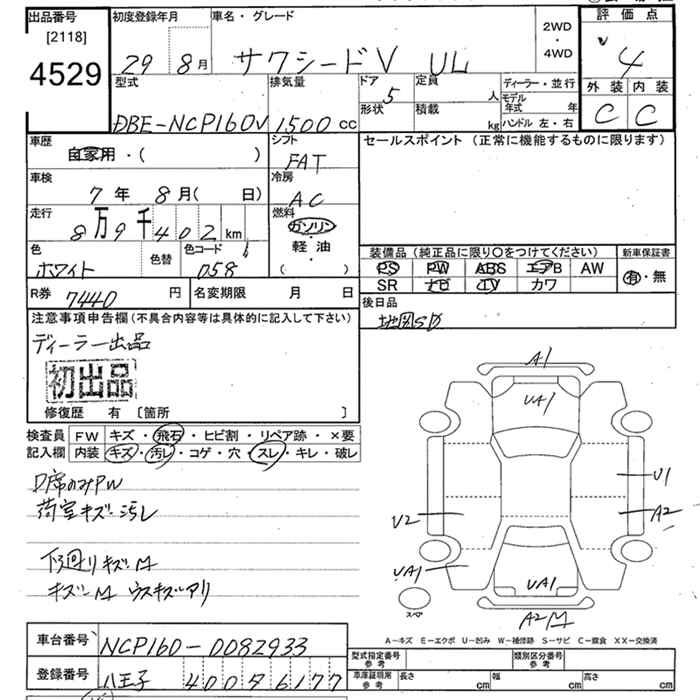 出品番号
[2118]
4529
初度登録年月
29 8月
車名・グレード
サクシードV UL
2WD
・
4WD
評価点
4
外装 内装
C C
型式
DBE-NCP160V
排気量
1500 cc
ドア 5
形状
定員 人
積載 kg
ディーラー・並行
モデル年式 年
ハンドル 左・右
車歴
自家用・( )
シフト
FAT
車検
7年 8月( 日)
冷房
AC
走行
8万9千402km
燃料
ガソリン
・
軽油
( )
色
ホワイト
色替
色コード
058
R券 7440 円
名変期限 月 日
セールスポイント (正常に機能するものに限ります)
装備品 (純正品に限り○をつけてください)
PS PW ABS エアB AW
SR ナビ TV カワ
新車保証書
有・無
後日品
地図SD
注意事項申告欄(不具合内容等は具体的に記入して下さい)
ディーラー出品
初出品
修復歴 有 [箇所 ]
検査員
記入欄
FW キズ・飛石・ヒビ割・リペア跡・×要
内装 キズ・汚レ・コゲ・穴・スレ・キレ・破レ
D席のみPW
荷室キズ 汚レ
下廻りキズ M
キズ M ウスキズアリ
A1
UA1
U1
A2
U2
UA1
UA1
スペア
A2
A-キズ E-エクボ U-凹み W-補修跡 S-サビ C-腐食 XX-交換済
車台番号 NCP160-0082933
登録番号 八王子 400 ... 6177
型式指定番号
参考
類別区分番号
参考
車庫証明用
参考
長さ cm
幅 cm
高さ cm